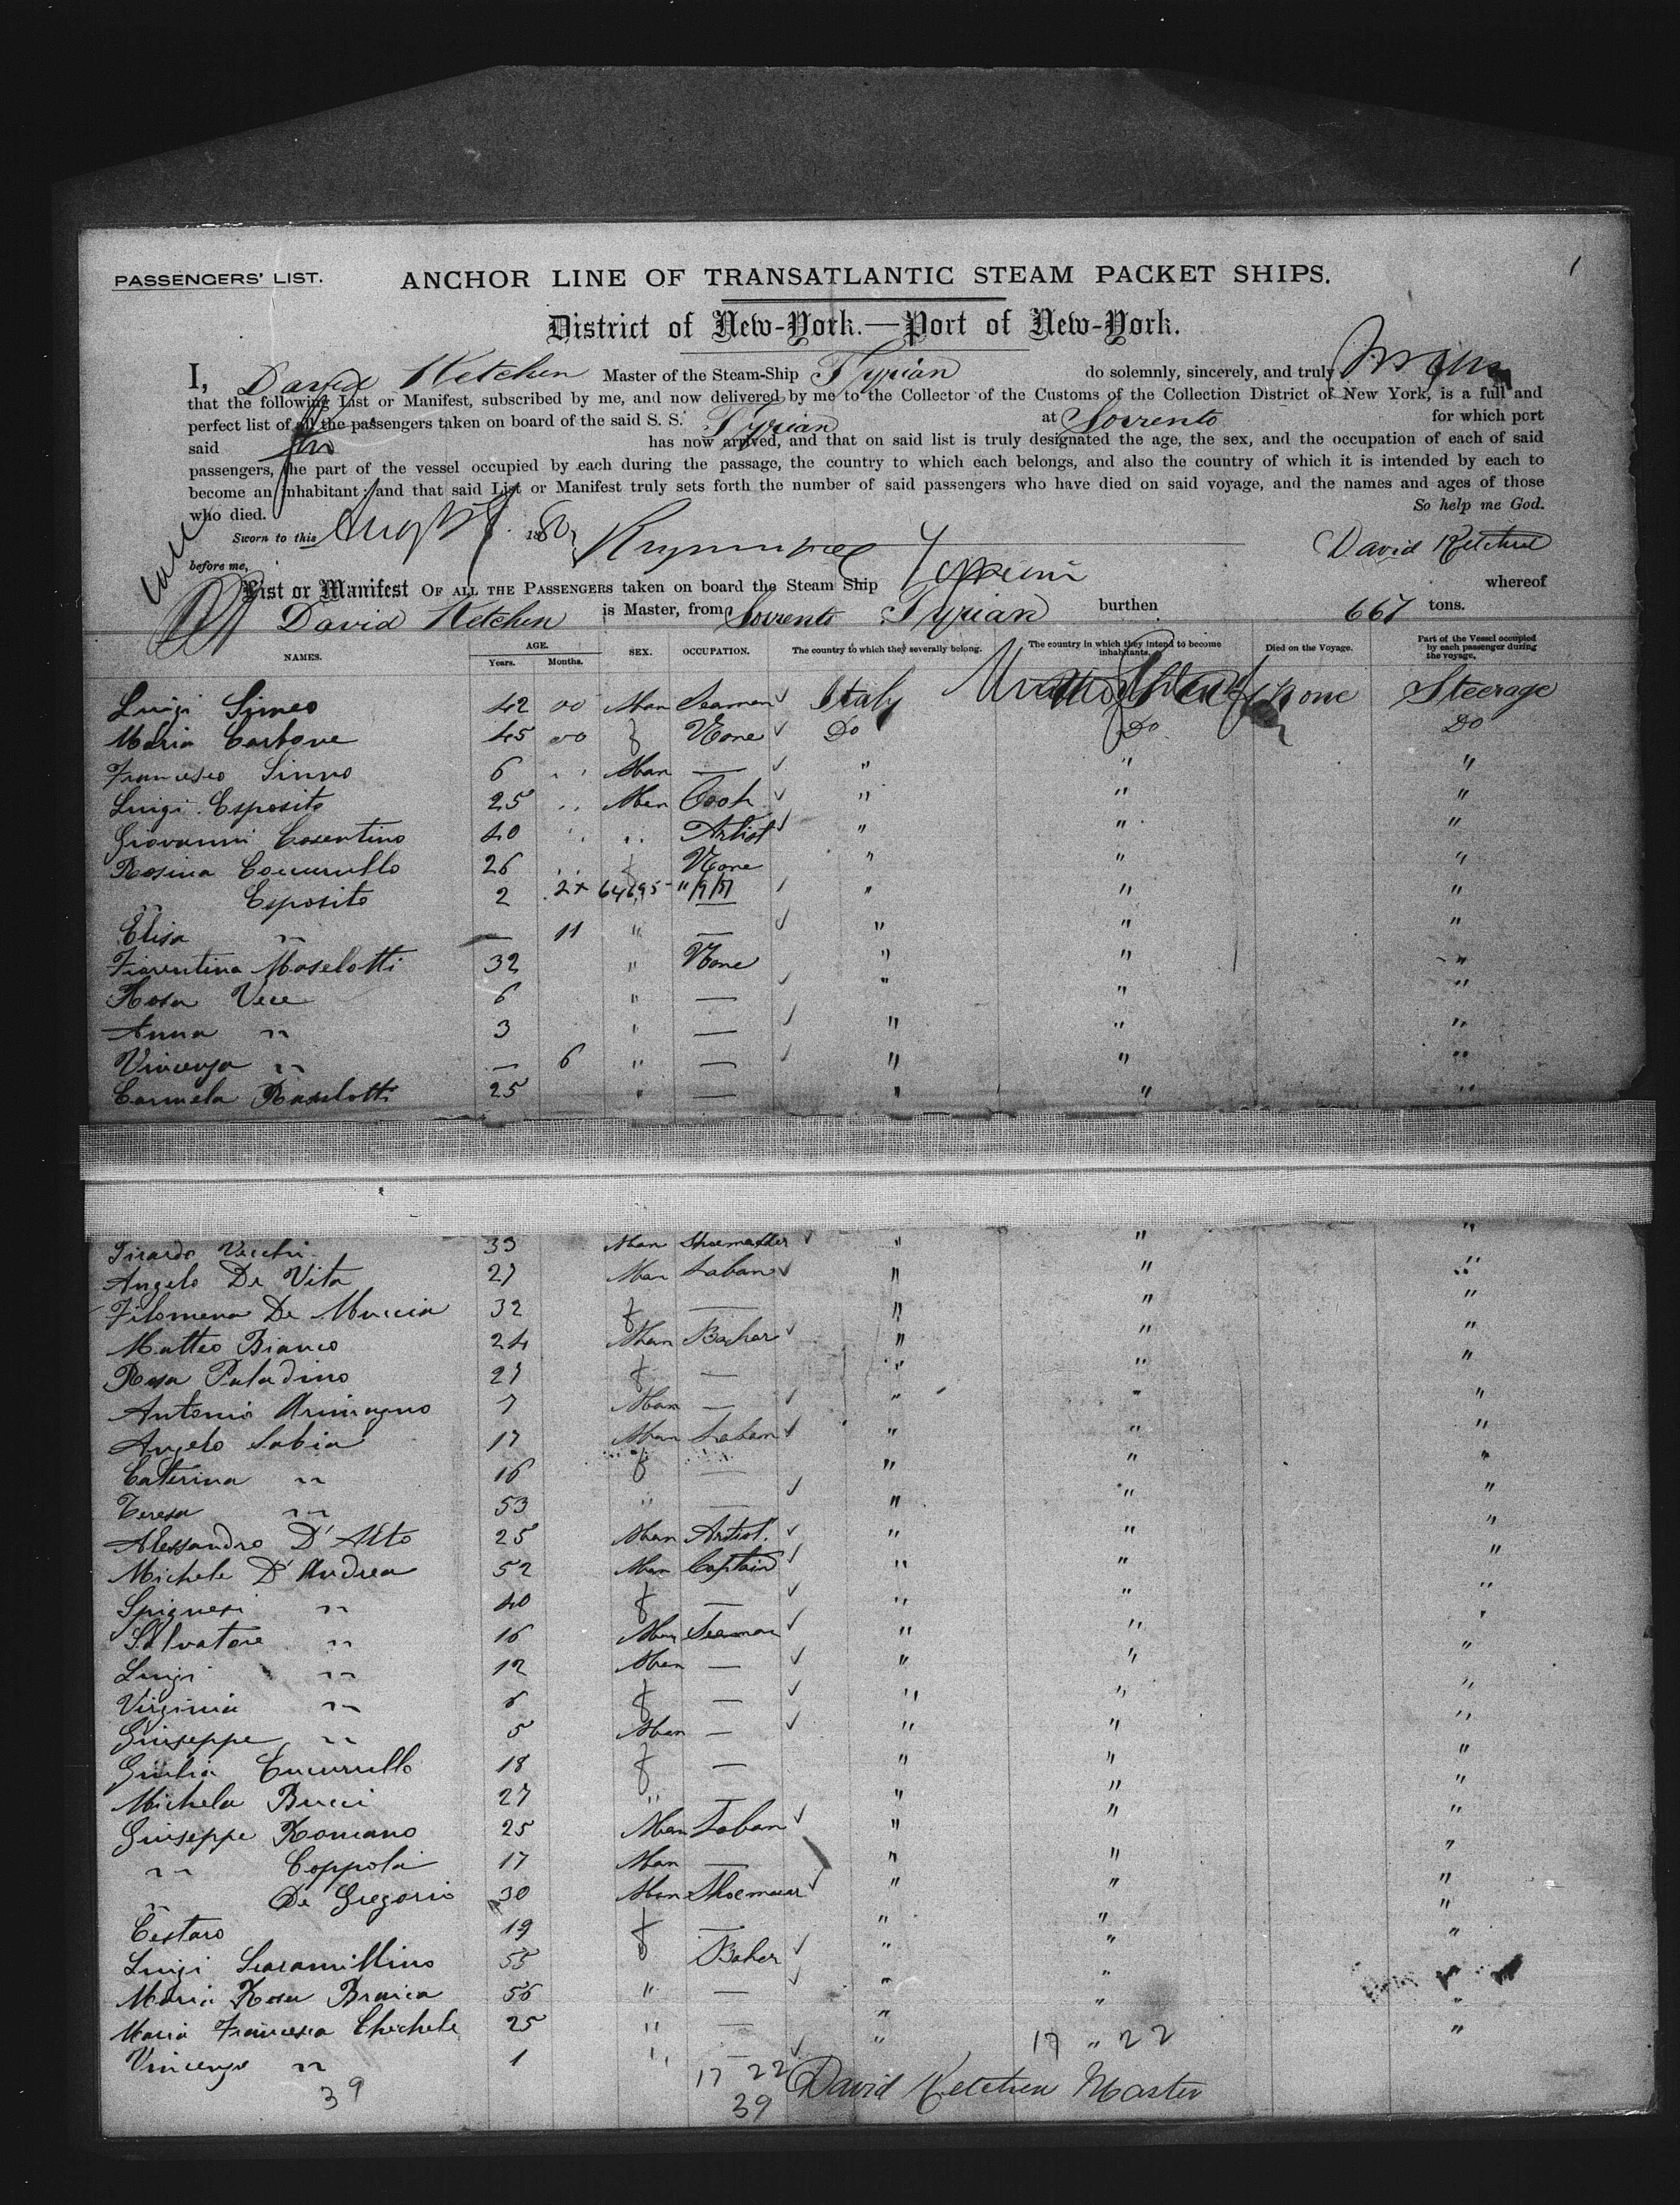 1
PASSENGERS' LIST. ANCHOR LINE OF TRANSATLANTIC STEAM PACKET SHIPS.
District of New-York.—Port of New-York.
I, David Ketchen Master of the Steam-Ship Tyrian do solemnly, sincerely, and truly
that the following List or Manifest, subscribed by me, and now delivered by me to the Collector of the Customs of the Collection District of New York, is a full and
perfect list of all the passengers taken on board of the said S. S. Tyrian at Sorrento for which port
said has now arrived, and that on said list is truly designated the age, the sex, and the occupation of each of said
passengers, the part of the vessel occupied by each during the passage, the country to which each belongs, and also the country of which it is intended by each to
become an inhabitant; and that said List or Manifest truly sets forth the number of said passengers who have died on said voyage, and the names and ages of those
who died. So help me God.
Sworn to this Augst 188 David Ketchen
before me,
List or Manifest OF ALL THE PASSENGERS taken on board the Steam Ship whereof
David Ketchen is Master, from Sorrento Tyrian burthen 667 tons.
NAMES. AGE. Years. Months. SEX. OCCUPATION. The country to which they severally belong. The country in which they intend to become inhabitants. Died on the Voyage. Part of the Vessel occupied by each passenger during the voyage.
Luigi Sinno 42 00 Man Seaman ✓ Italy United States None Steerage
Maria Carbone 45 00 f None ✓ Do Do Do
Francesco Sinno 6 " Man — ✓ " " "
Luigi Esposito 25 " Man Cook ✓ " " "
Giovanni Cosentino 40 " " Artist ✓ " " "
Rosina Cocurullo 26 " f None " " "
" Esposito 2 2x 64695 "/9/57 — ✓ " " "
Elisa " — 11 " — ✓ " " "
Fiorentina Moselotti 32 " None " " "
Rosa Vece 6 " — ✓ " " "
Anna " 3 " — ✓ " " "
Vincenza " — 6 " — ✓ " " "
Carmela 25 " — " " "
Girardo Vecchi 33 Man Shoemaker ✓ " " "
Angelo De Vita 27 Man Labour ✓ " " "
Filomena De Muccia 32 f — " " "
Matteo Bianco 24 Man Baker ✓ " " "
Rosa Paladino 27 f — " " "
Antonio Arimagno 7 Man — ✓ " " "
Angelo Sabia 17 Man Labour ✓ " " "
Caterina " 16 f — " " "
Teresa " 53 " — ✓ " " "
Alessandro D'Alto 25 Man Artist. ✓ " " "
Michele D'Andrea 52 Man Captain ✓ " " "
Spignesi " 40 f — ✓ " " "
Salvatore " 16 Man Seaman ✓ " " "
Luigi " 12 Man — ✓ " " "
Virginia " 6 f — ✓ " " "
Giuseppe " 5 Man — ✓ " " "
Giulia Cucurullo 18 f — " " "
Michela Bucci 27 " — " " "
Giuseppe Romano 25 Man Labour ✓ " " "
" Coppola 17 Man — " " "
" De Gregorio 30 Man Shoemaker ✓ " " "
Cestaro 19 f — " " "
Luigi Scaramillino 55 Baker ✓ " " "
Maria Rosa Braica 56 " — ✓ " "
Maria Francesca Chichele 25 " — " " "
Vincenza " 1 " — ✓ " 17 " 22 "
39 17 22 David Ketchen Master
39